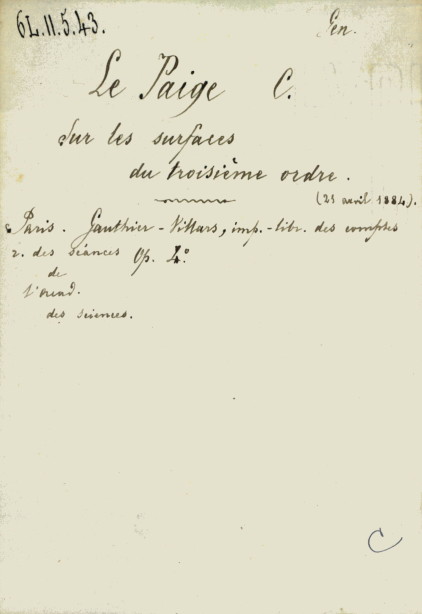 6L.II.5.43.
Gen.
Le Paige C.
Sur les surfaces
du troisième ordre.
(21 avril 1884).
Paris. Gauthier-Villars, imp.-libr. des comptes
r. des séances Op. 4°
de
l'acad.
des sciences.
C